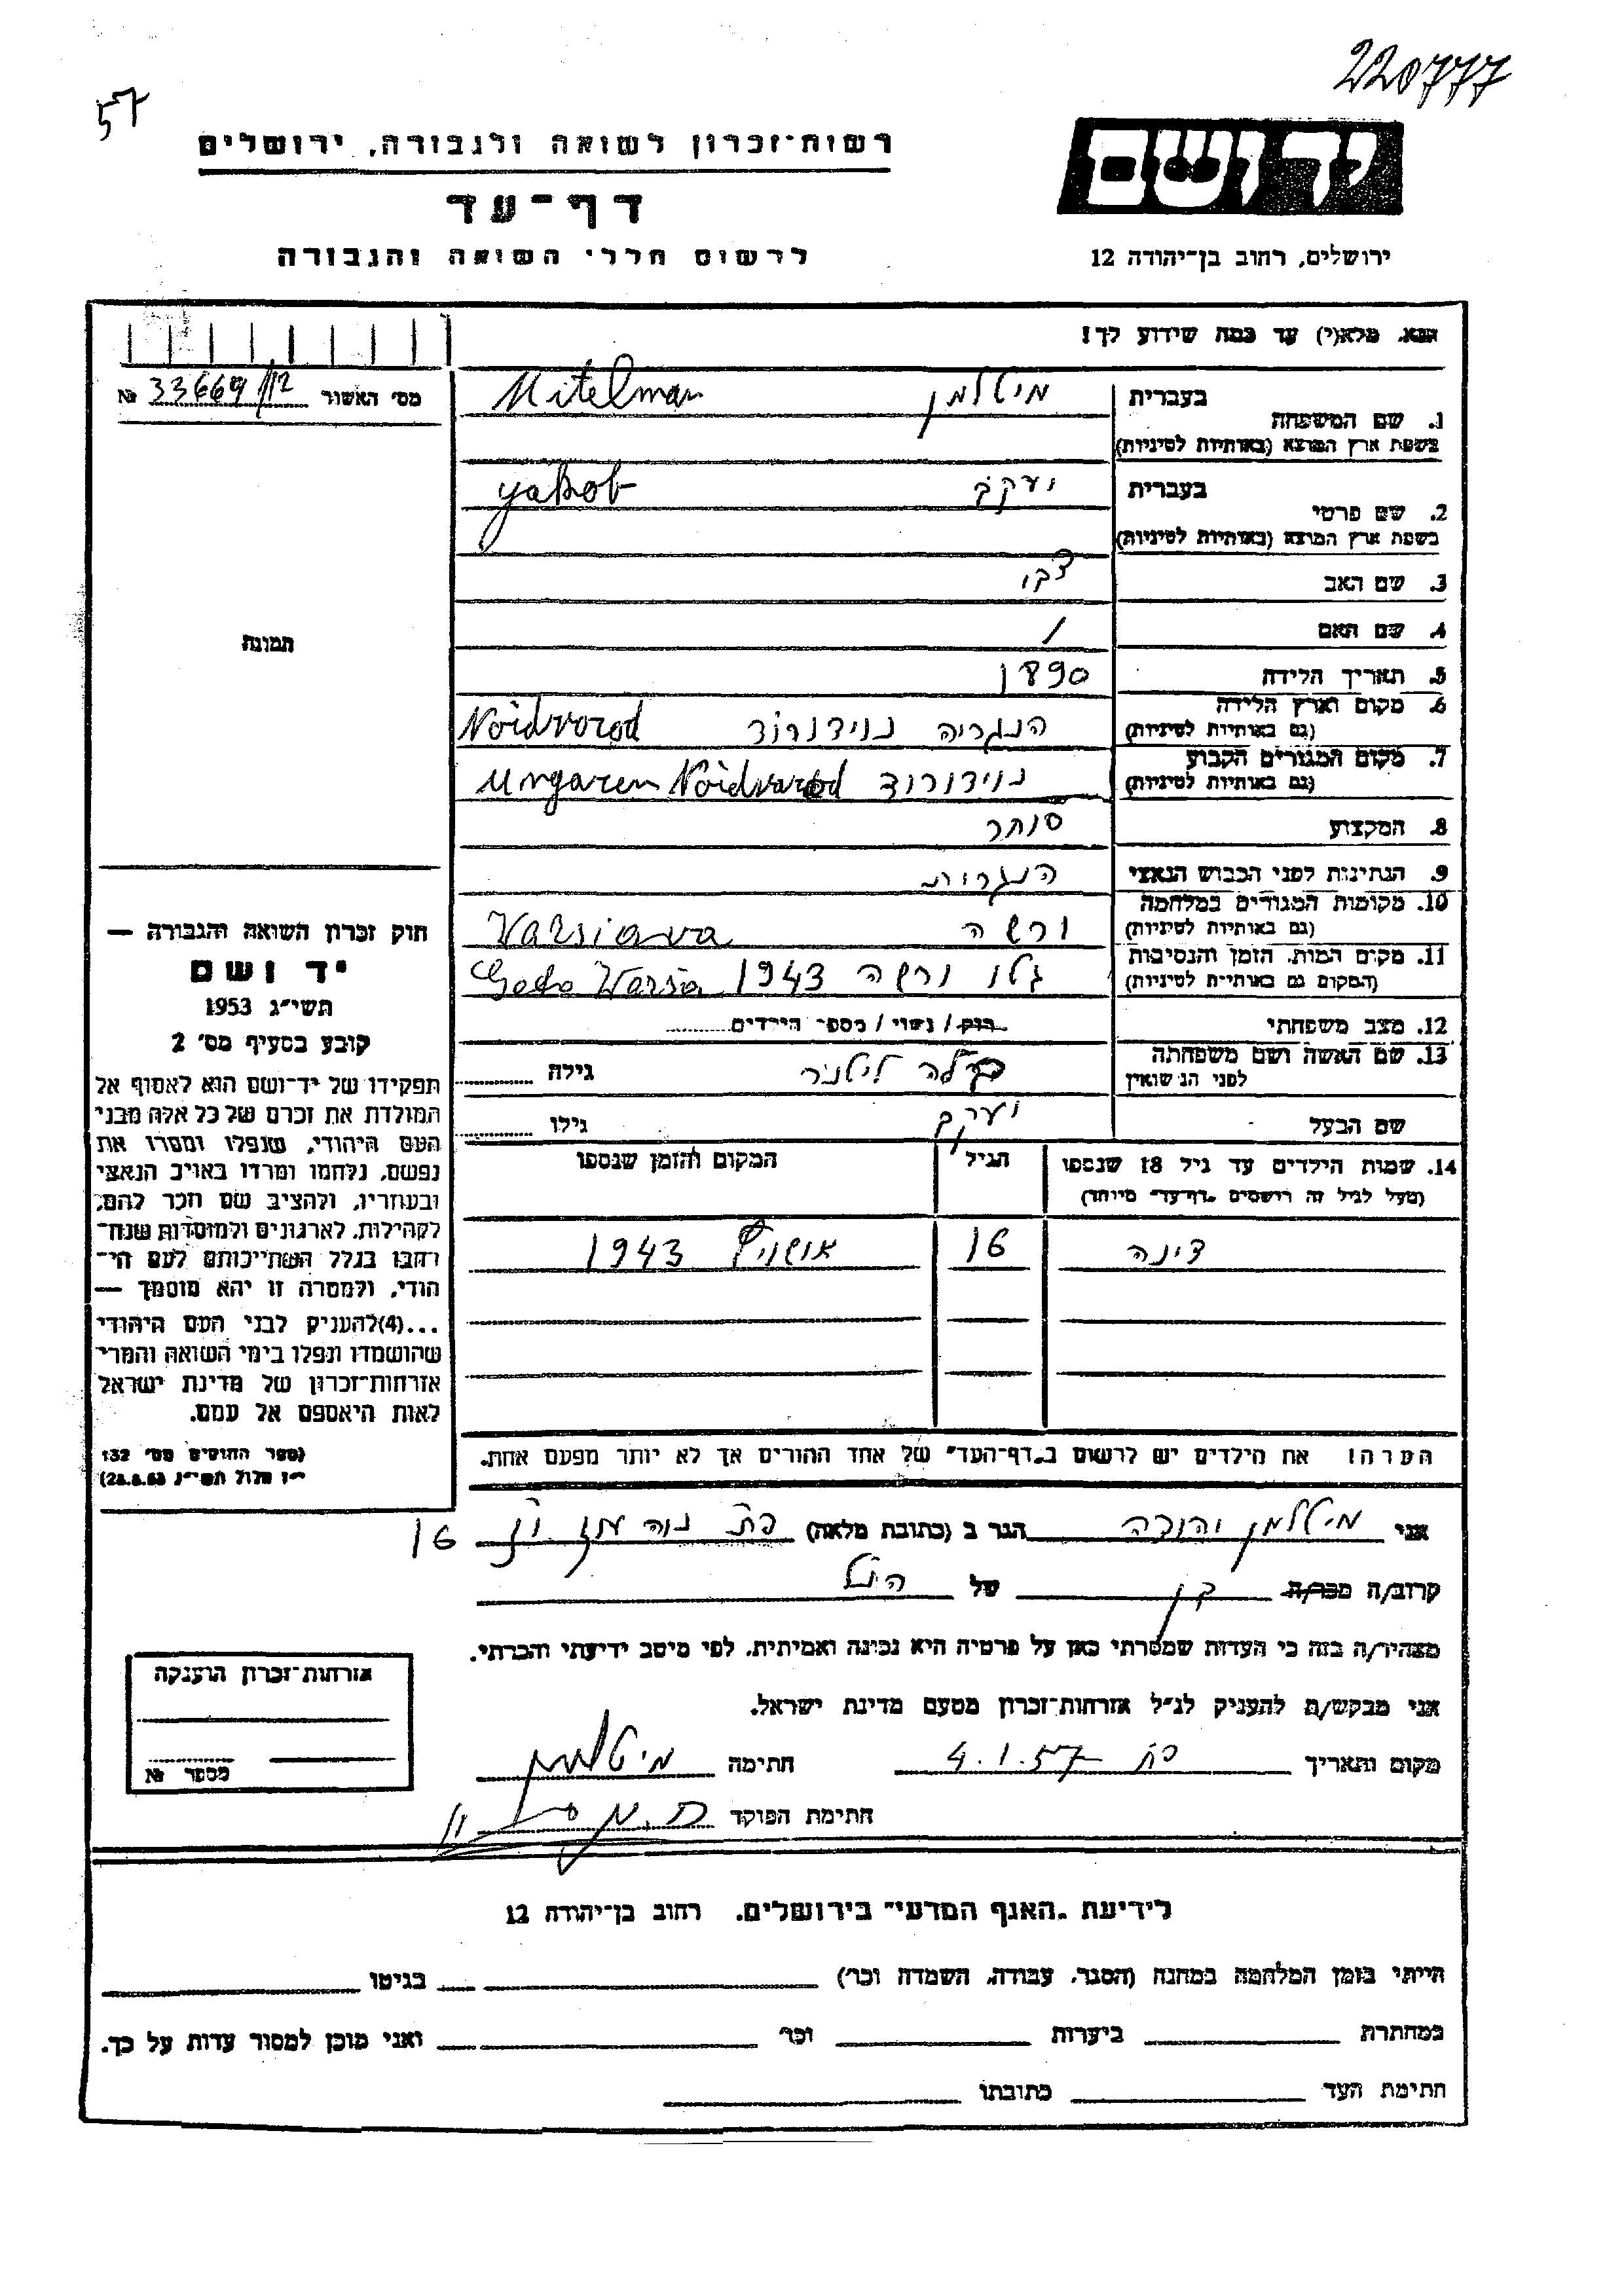 220777
57
יד ושם
רשות־זכרון לשואה ולגבורה, ירושלים
דף־עד
לרשום חללי השואה והגבורה
ירושלים, רחוב בן־יהודה 12
נא, מלא(י) עד כמה שידוע לך!
מס' האשור 33669/12 №
תמונה
1. שם המשפחה בעברית מיטלמן Mitelman
בשפת ארץ המוצא (באותיות לטיניות)
2. שם פרטי בעברית יעקב Yakob
בשפת ארץ המוצא (באותיות לטיניות)
3. שם האב צבי
4. שם האם /
5. תאריך הלידה 1890
6. מקום וארץ הלידה הנגריה נוידורוד Noidvorod
(גם באותיות לטיניות)
7. מקום המגורים הקבוע נוידורוד Ungaren Noidvarod
(גם באותיות לטיניות)
8. המקצוע סוחר
9. הנתינות לפני הכבוש הנאצי הנגרית
10. מקומות המגורים במלחמה ורשה Varsiava
(גם באותיות לטיניות)
11. מקום המות, הזמן והנסיבות גטו ורשה 1943 Geto Warsia
(המקום גם באותיות לטיניות)
12. מצב משפחתי רווק / נשוי / מספר הילדים
13. שם האשה ושם משפחתה לפני הנישואין גילה
שם הבעל יעקב גילו
14. שמות הילדים עד גיל 18 שנספו הגיל המקום והזמן שנספו
(מעל לגיל זה רושמים "דף־עד" מיוחד)
דינה 16 אושויץ 1943
הערה! את הילדים יש לרשום ב"דף־העד" של אחד ההורים אך לא יותר מפעם אחת.
חוק זכרון השואה והגבורה —
יד ושם
תשי"ג 1953
קובע בסעיף מס' 2
תפקידו של יד־ושם הוא לאסוף אל
המולדת את זכרם של כל אלה מבני
העם היהודי, שנפלו ומסרו את
נפשם, נלחמו ומרדו באויב הנאצי
ובעוזריו, ולהציב שם וזכר להם,
לקהילות, לארגונים ולמוסדות שנח־
רבו בגלל השתייכותם לעם הי־
הודי, ולמטרה זו יהא מוסמך —
...(4) להעניק לבני העם היהודי
שהושמדו ונפלו בימי השואה והמרי
אזרחות־זכרון של מדינת ישראל
לאות היאספם אל עמם.
(ספר החוקים מס' 132
י"ז אלול תשי"ג 28.8.53)
אני מיטלמן יהודה הגר ב (כתובת מלאה) 16
קרוב/ה מכר/ה בן של הנ"ל
מצהיר/ה בזה כי העדות שמסרתי כאן על פרטיה היא נכונה ואמיתית, לפי מיטב ידיעתי והכרתי.
אני מבקש/ת להעניק לנ"ל אזרחות־זכרון מטעם מדינת ישראל.
מקום ותאריך 4.1.57 חתימה מיטלמן
חתימת הפוקד
אזרחות־זכרון הוענקה
מספר №
לידיעת "האגף המדעי" בירושלים, רחוב בן־יהודה 12
הייתי בזמן המלחמה במחנה (הסגר, עבודה, השמדה וכו') בגיטו
במחתרת ביערות וכו' ואני מוכן למסור עדות על כך.
חתימת העד כתובתו